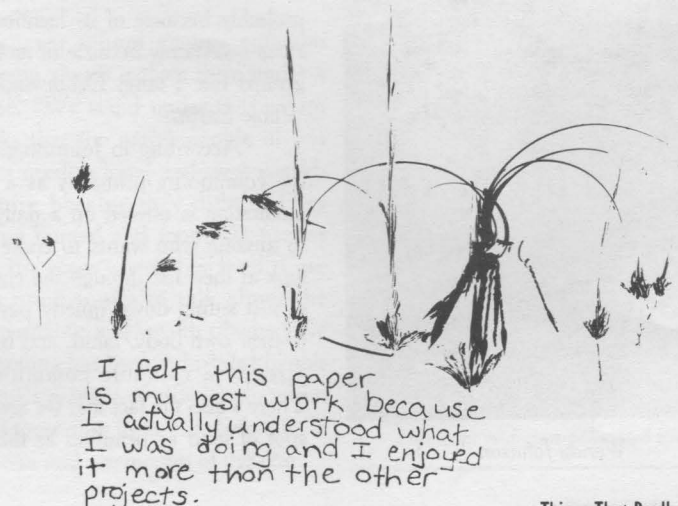 I felt this paper
is my best work because
I actually understood what
I was doing and I enjoyed
it more than the other
projects.